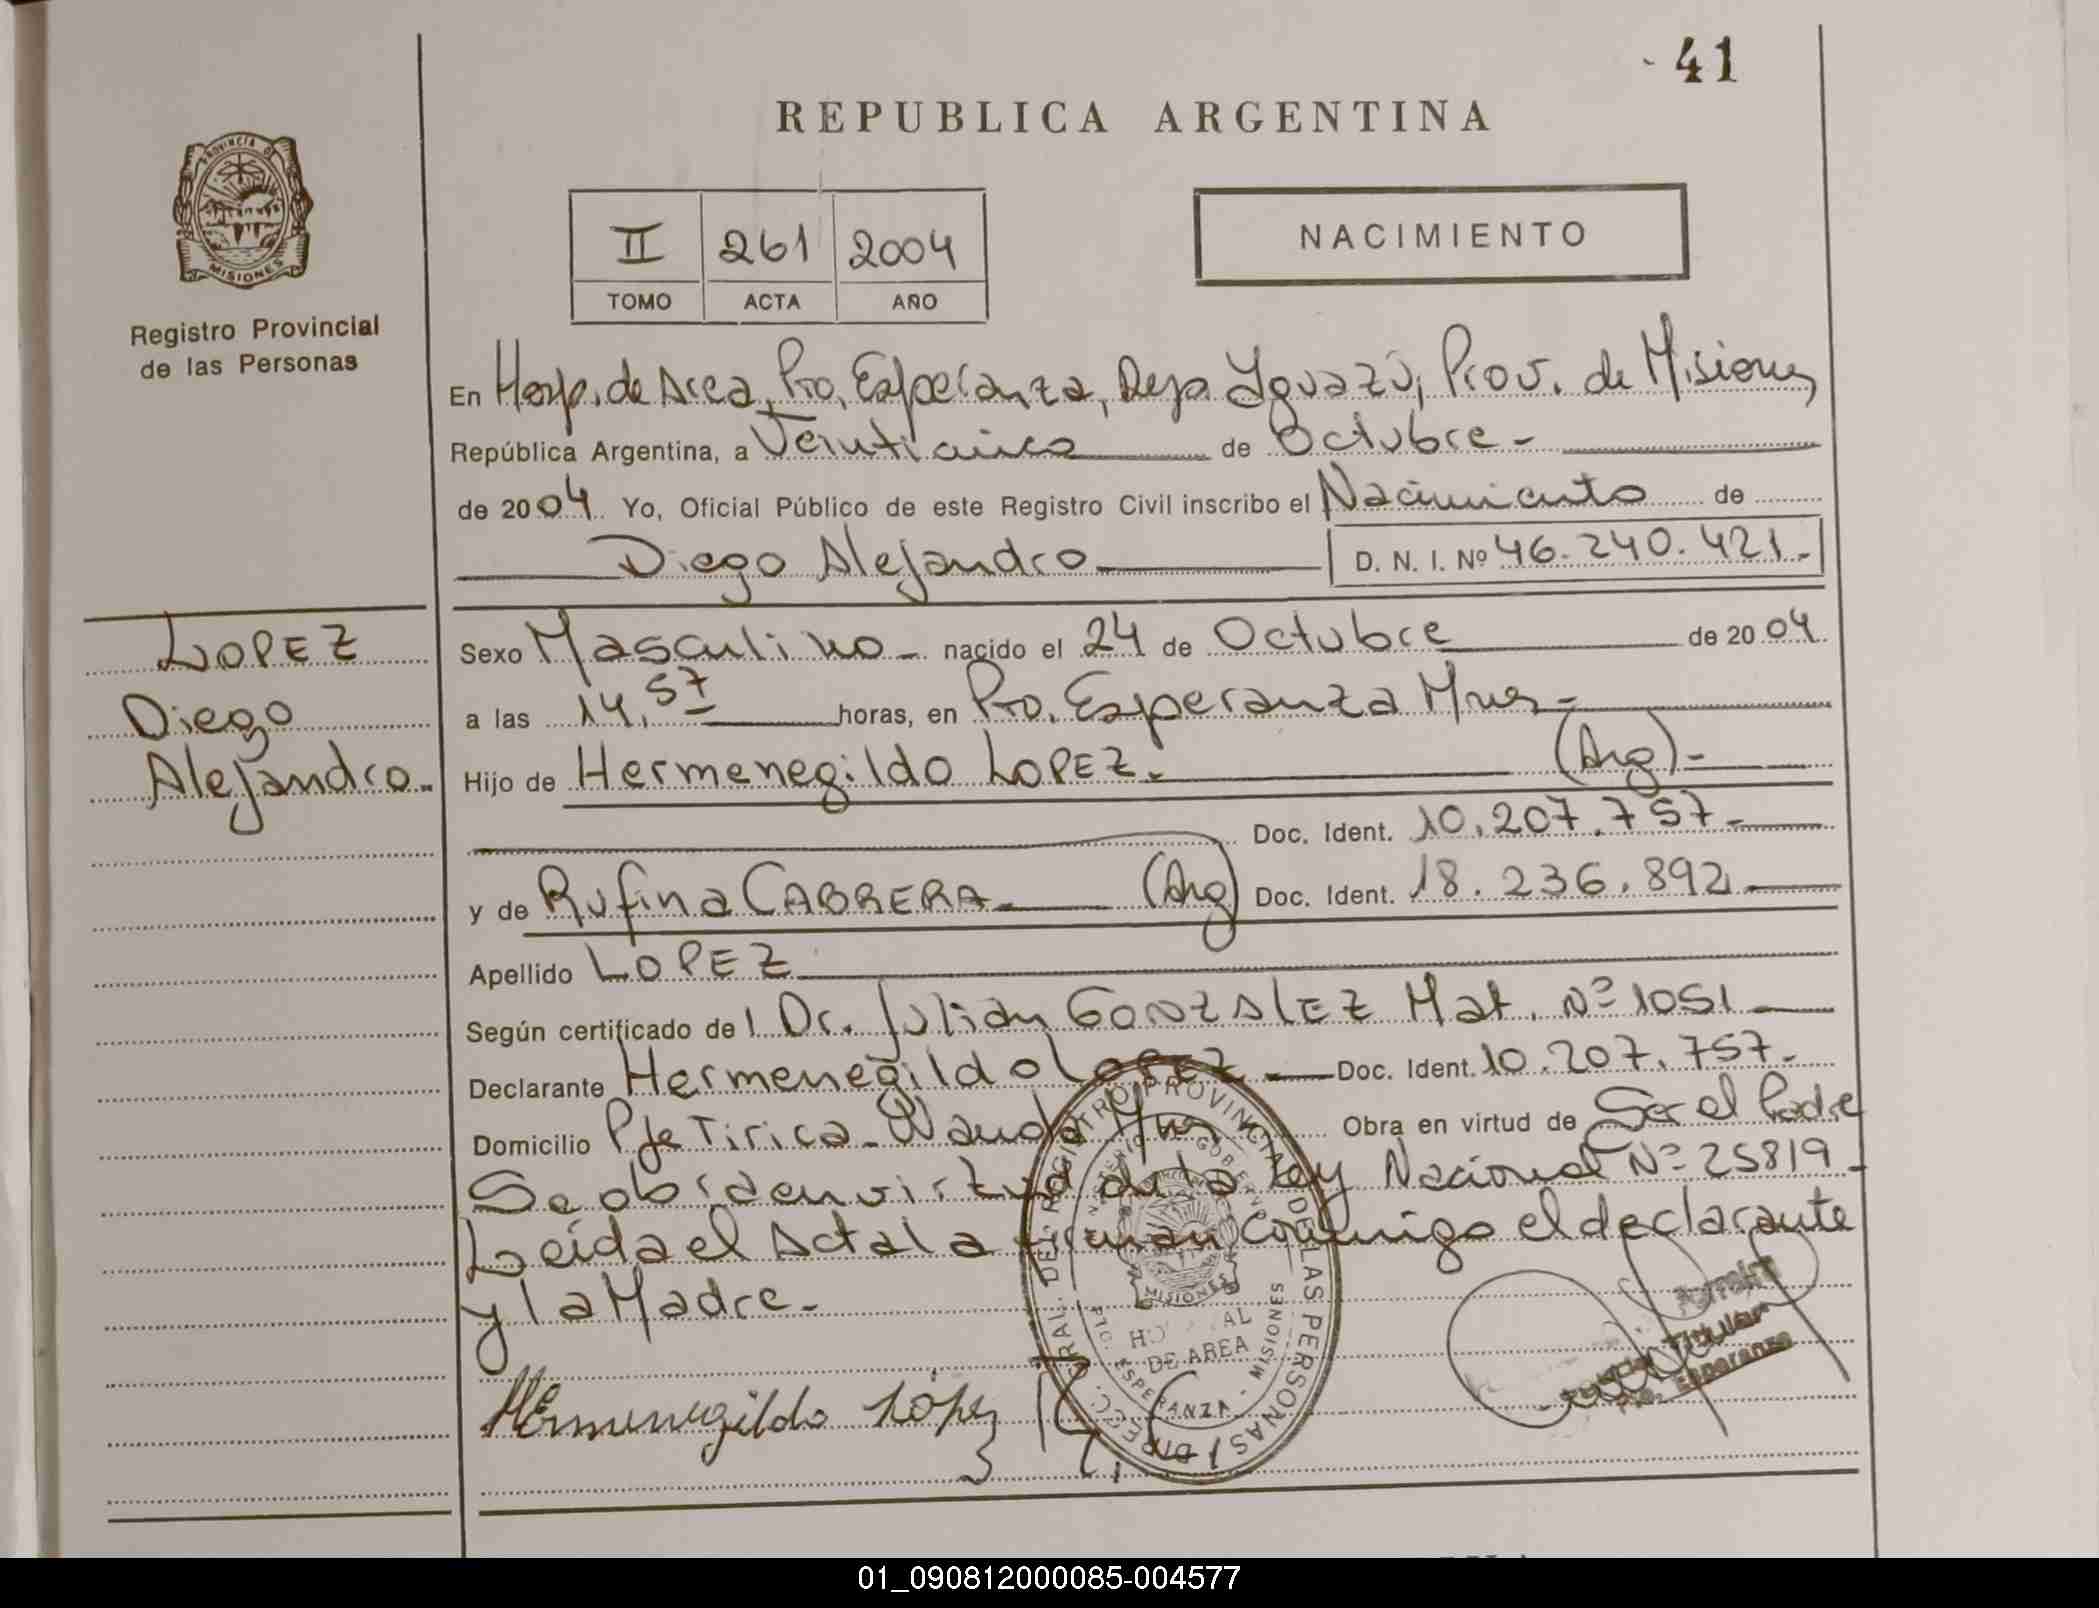 41
REPUBLICA ARGENTINA
PROVINCIA DE
MISIONES
Registro Provincial
de las Personas
II 261 2004
TOMO ACTA AÑO
NACIMIENTO
En Hosp. de Area, Pto. Esperanza, Dep. Iguazú, Prov. de Misiones
República Argentina, a Veinticinco de Octubre -
de 2004 Yo, Oficial Público de este Registro Civil inscribo el Nacimiento de
Diego Alejandro D. N. I. Nº 46.240.421.-
LOPEZ
Diego
Alejandro.
Sexo Masculino - nacido el 24 de Octubre de 2004
a las 14,57 horas, en Pto. Esperanza Mnes -
Hijo de Hermenegildo LOPEZ. (Arg) -
Doc. Ident. 10.207.757 -
y de Rufina CABRERA. (Arg) Doc. Ident. 18.236.892 -
Apellido LOPEZ
Según certificado de l Dr. Julian GONZALEZ Mat. Nº 1051
Declarante Hermenegildo LOPEZ Doc. Ident. 10.207.757 -
Domicilio Pje Tirica - Wanda Mns Obra en virtud de Ser el Padre
Se obra en virtud de la Ley Nacional Nº 25819 -
Leida el Acta la firman conmigo el declarante
y la Madre -
Hermenegildo López
DIRECC. GRAL. DEL REGISTRO PROVINCIAL DE LAS PERSONAS
MISIONES
DE AREA
PTO. ESPERANZA - MISIONES
Titular
Pto. Esperanza
01_090812000085-004577